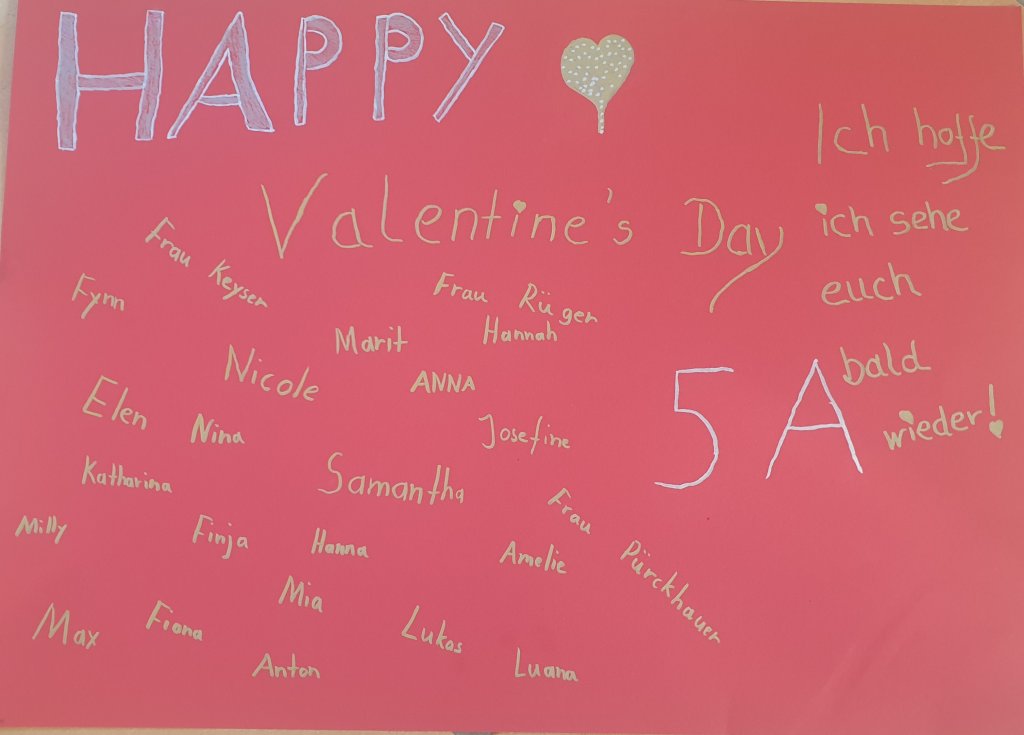 HAPPY
Valentine's Day
Ich hoffe
ich sehe
euch
bald
wieder!
5A
Frau Keyser
Fynn
Frau Rüger
Marit
Hannah
Nicole
ANNA
Elen
Nina
Josefine
Katharina
Samantha
Frau Pürckhauer
Milly
Finja
Hanna
Amelie
Mia
Max
Fiona
Lukas
Anton
Luana